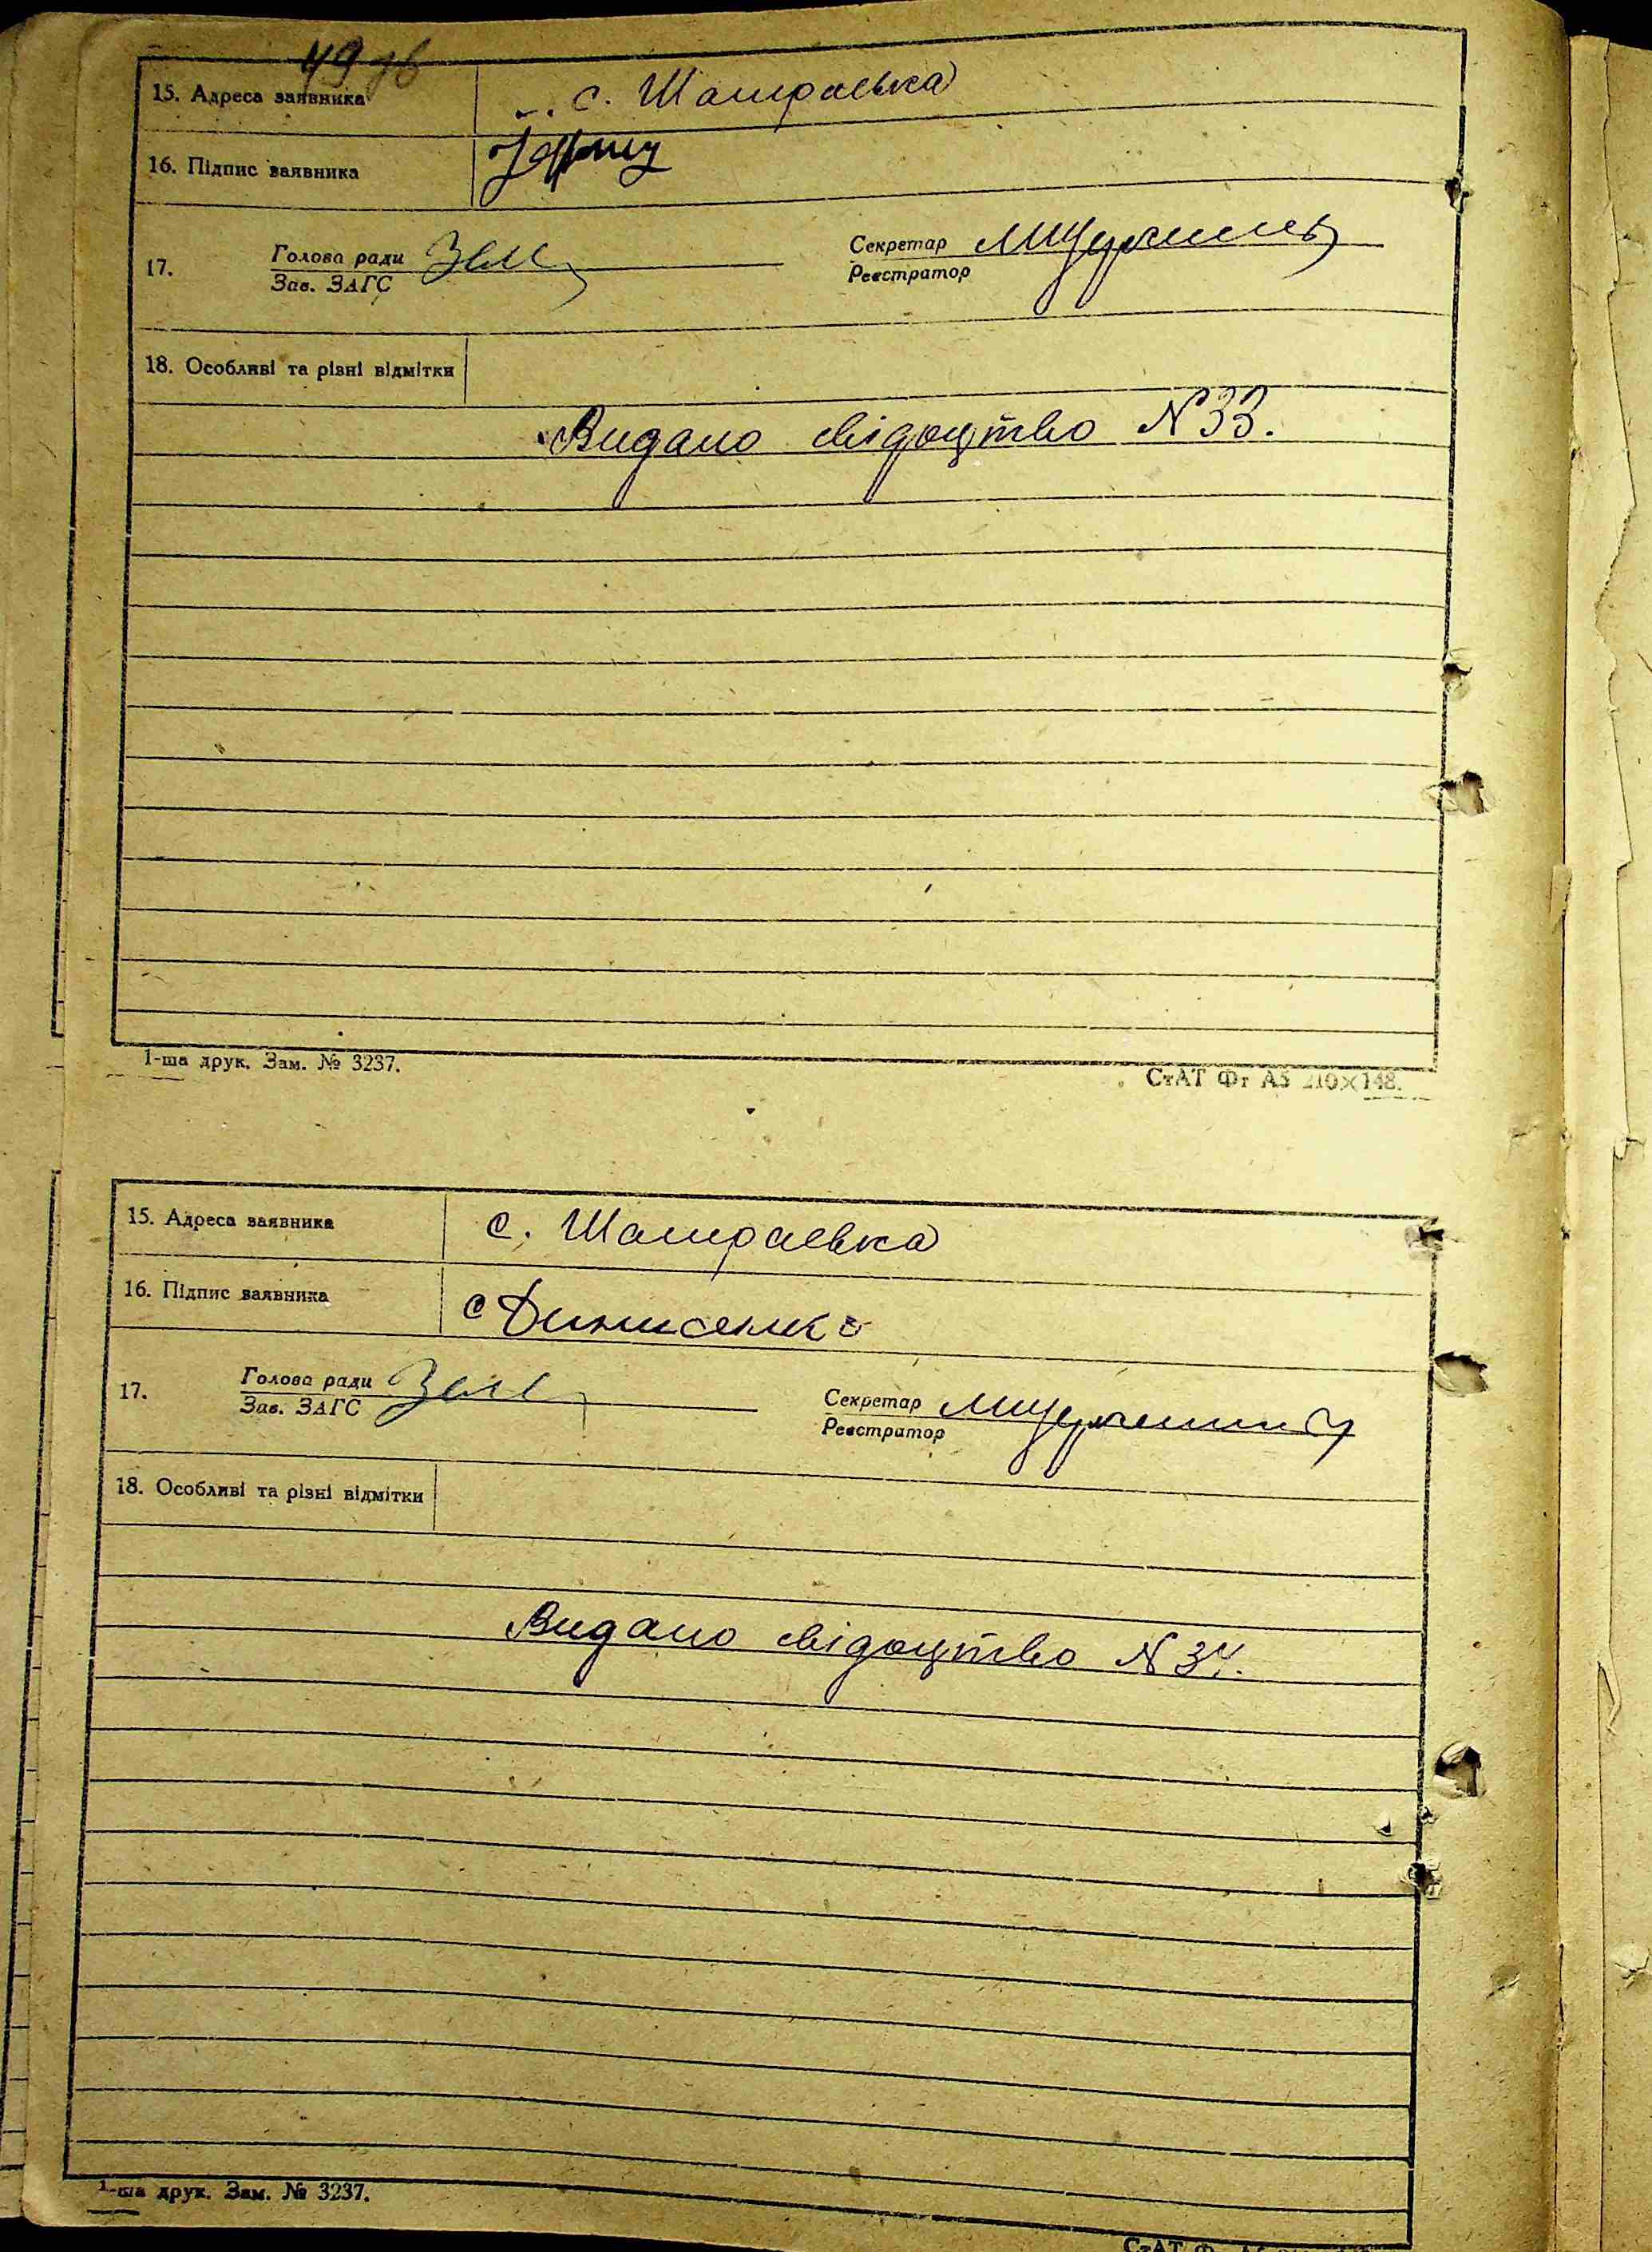 49 зв
15. Адреса заявника с. Шамраєвка
16. Підпис заявника
17. Голова ради Секретар
Зав. ЗАГС Реєстратор
18. Особливі та різні відмітки
Видано свідоцтво N 33.
1-ша друк. Зам. № 3237.
СтАТ Фт А5 210×148.
15. Адреса заявника с. Шамраєвка
16. Підпис заявника Динисенко
17. Голова ради Секретар
Зав. ЗАГС Реєстратор
18. Особливі та різні відмітки
Видано свідоцтво N 34.
1-ша друк. Зам. № 3237.
СтАТ